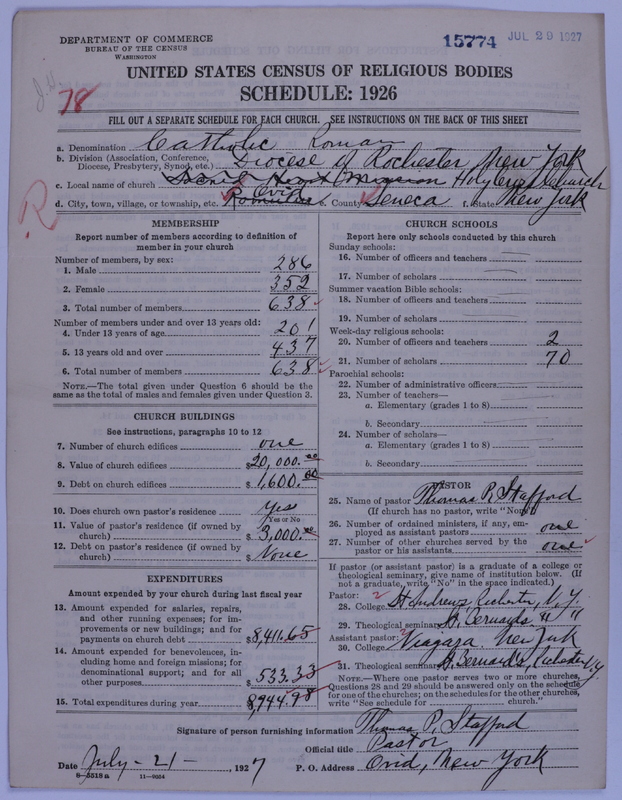 DEPARTMENT OF COMMERCE
BUREAU OF THE CENSUS
WASHINGTON
15774 JUL 29 1927
78
UNITED STATES CENSUS OF RELIGIOUS BODIES
SCHEDULE: 1926
FILL OUT A SEPARATE SCHEDULE FOR EACH CHURCH. SEE INSTRUCTIONS ON THE BACK OF THIS SHEET
a. Denomination Catholic Roman
b. Division (Association, Conference, Diocese, Presbytery, Synod, etc.) Diocese of Rochester New York
c. Local name of church Holy Cross Church
d. City, town, village, or township, etc. Romulus Ovid e. County Seneca f. State New York
R
MEMBERSHIP
Report number of members according to definition of member in your church
Number of members, by sex:
1. Male 286
2. Female 352
3. Total number of members 638
Number of members under and over 13 years old:
4. Under 13 years of age 201
5. 13 years old and over 437
6. Total number of members 638
NOTE.—The total given under Question 6 should be the same as the total of males and females given under Question 3.
CHURCH BUILDINGS
See instructions, paragraphs 10 to 12
7. Number of church edifices one
8. Value of church edifices $20,000.00
9. Debt on church edifices $1,600.00
10. Does church own pastor's residence Yes
Yes or No
11. Value of pastor's residence (if owned by church) $3,000.00
12. Debt on pastor's residence (if owned by church) $None
EXPENDITURES
Amount expended by your church during last fiscal year
13. Amount expended for salaries, repairs, and other running expenses; for improvements or new buildings; and for payments on church debt $8,411.65
14. Amount expended for benevolences, including home and foreign missions; for denominational support; and for all other purposes $533.33
15. Total expenditures during year $8,944.98
CHURCH SCHOOLS
Report here only schools conducted by this church
Sunday schools:
16. Number of officers and teachers
17. Number of scholars
Summer vacation Bible schools:
18. Number of officers and teachers
19. Number of scholars
Week-day religious schools:
20. Number of officers and teachers 2
21. Number of scholars 70
Parochial schools:
22. Number of administrative officers
23. Number of teachers—
a. Elementary (grades 1 to 8)
b. Secondary
24. Number of scholars—
a. Elementary (grades 1 to 8)
b. Secondary
PASTOR
25. Name of pastor Thomas P. Stafford
(If church has no pastor, write "None")
26. Number of ordained ministers, if any, employed as assistant pastors one
27. Number of other churches served by the pastor or his assistants one
If pastor (or assistant pastor) is a graduate of a college or theological seminary, give name of institution below. (If not a graduate, write "No" in the space indicated.)
Pastor:
28. College St Andrews, Rochester, N.Y.
29. Theological seminary St. Bernards " "
Assistant pastor:
30. College Niagara. New York
31. Theological seminary St. Bernard's, Rochester N.Y
NOTE.—Where one pastor serves two or more churches, Questions 28 and 29 should be answered only on the schedule for one of the churches; on the schedules for the other churches, write "See schedule for church."
Signature of person furnishing information Thomas P. Stafford
Official title Pastor
Date July - 21 - 1927 P. O. Address Ovid, New York
8—5518a 11—9054